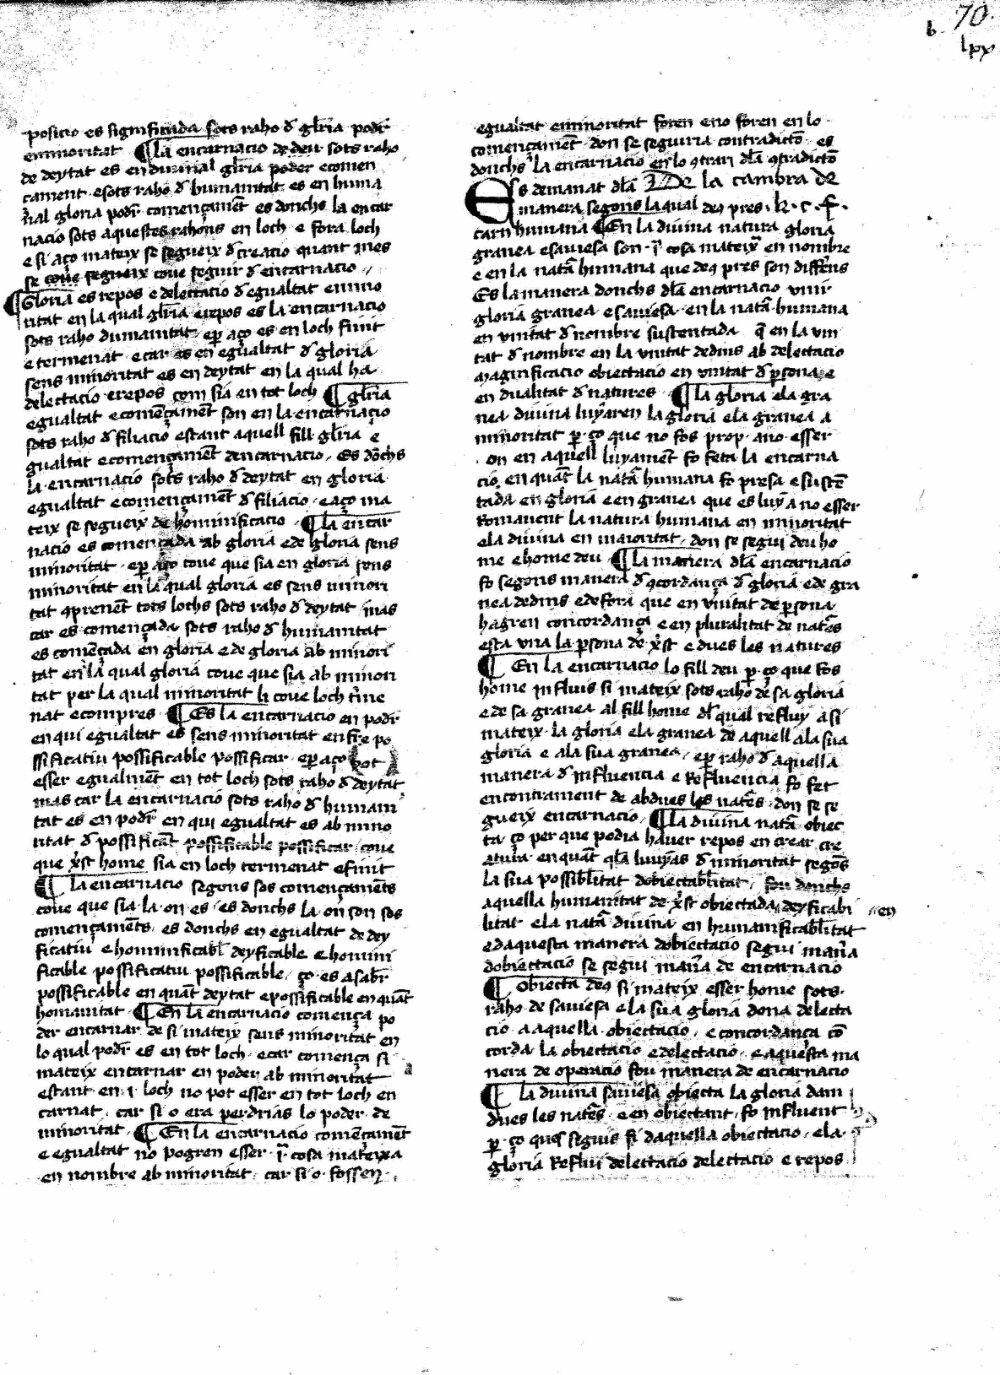 b 70
lxx
posicio es significada sots raho d gl̄ria podr̄
e minoritat · ¶ La encarnacio de deu sots raho
de deytat es en diuinal gl̄ria poder e comen
cament · e sots raho d humanitat es en huma
nal gloria podr̄ començam̄t es donchs la encar
nacio sots aquestes rahons en loch e fora loch
e si aço mateix se segueix d creacio quant mes
se coue segueix coue seguir d encarnacio
¶ Gloria es repos e delectacio d egualtat e mino
ritat en la qual gl̄ria e repos es la encarnacio
sots raho dumanitat · e ꝑ aço es en loch finit
e termenat e car es en egualtat d gloria
sens minoritat es en deytat en la qual ha
delectacio e repos com sia en tot loch ¶ gl̄ria
egualtat e comēçam̄t son en la encarnaçio
sots raho d filiacio estant aquell fill gl̄ria e
gualtat e començam̄t dencarnacio · es dōchs
la encarnacio sots raho d deytat en gloria
egualtat e començam̄t d filiacio · e aço ma
teix se segueix de hominificacio · ¶ la encar
nacio es començada ab gloria e de gloria sens
minoritat · e ꝑ aço coue que sia en gloria sens
minoritat en la qual gloria es sens minori
tat ꝯprenēt tots lochs sots raho d deytat mas
car es començada sots raho d humanitat
es comēçada en gloria e de gloria ab minori
tat en la qual gloria coue que sia ab minori
tat per la qual minoritat li coue loch t̄me
nat e compres · ¶ Es la encarnacio en podr̄
en qui egualtat es sens minoritat enfre po
ssificatiu possificable possificar · e ꝑ aço pot
esser egualmēt en tot loch sots raho d deytat
mas car la encarnacio sots raho d humani
tat es en podr̄ en qui egualtat es ab mino
ritat d possificāt possificable possificar · coue
que xp̄st home sia en loch termenat e finit
¶ La encarnacio segons sos començamēts
coue que sia la on es · es donchs la on son sos
començamēts · es donchs en egualtat de dey
ficatiu e hominificabl̄ deyficable e homini
ficable possificatiu possificable · ço es a sabr̄
possificable en quāt deytat e possificable en quāt
humanitat · ¶ En la encarnacio comença po
der encarnar de si mateix sens minoritat en
lo qual podr̄ es en tot loch · e car comença si
mateix encarnar en poder ab minoritat
estant en · i · loch no pot esser en tot loch en
carnat · car si o era perdrias lo poder de
minoritat · ¶ En la encarnacio comēçament
e egualtat no pogren esser · i̅ · cosa mateixa
en nombre ab minoritat · car si o fossen ·
egualtat e minoritat foren e no foren en lo
començamēt · don se seguiria contradictō · es
donchs la encarnacio en lo ꝯtrari dla ꝯtradictō
Es demanat dla De la cambra de
manera segons la qual deꝯ pres · k · c · f ·
carn humana ¶ En la diuina natura gloria
granea e sauiesa son · i̅ cosa mateix en nombre
e en la nata humana que deꝯ pres son differ̄ns
Es la manera donchs dla encarnacio vnir
gloria granea e sauiesa · en la nata humana
en vnitat d nombre sustentada · q̄ en la vni
tat d nombre en la vnitat dedins ab delectacio
magnificacio obiectacio en vnitat d ꝑsona e
en dualitat d natures · ¶ La gloria e la gra
nea diuina luyaren la gloria e la granea a
minoritat ꝑ ço que no fos prop · a no esser
· on en aquell luyament fo feta la encarna
cio · en quāt la nata humana fo presa e sustē
tada en gloria e en granea que es luyā no esser
romanent la natura humana en minoritat
e la diuina en maioritat · don se segui deu ho
me e home deu · ¶ La manera dla encarnacio
fo segons manera d ꝯcordança d gloria e de gra
nea dedins e defora que en vnitat de ꝑsona
hagren concordança e en pluralitat de natēs
esta vna la ꝑsona de xp̄st e dues les natures
¶ En la encarnacio lo fill deu ꝑ ço que fos
home influis si mateix sots raho de sa gloria
e de sa granea al fill home dl qual refluy a si
mateix · la gloria e la granea de aquell a la sua
gloria e a la sua granea · e ꝑ raho d aquella
manera d influencia e refluencia fo fet
encontrament de abdues les natēs · don se se
gueix encarnacio · ¶ La diuina nata obiec
ta ço per que podia hauer repos en crear cre
atura en quāt qla luuyas d minoritat segōs
la sua possibl̄itat dobiectabl̄itat · fou donchs
aquella humanitat de xp̄st obiectada en deyficabi
litat e la nata diuina en humanificabl̄itat
e daquesta manera dobiectacio segui man̄a
dobiectacio se segui man̄a de encarnacio
¶ Obiecta deꝯ si mateix esser home sots
raho de sauiesa e la sua gloria dona delecta
cio a aquella obiectacio · e concordança cō
corda la obiectacio e delectacio · e aquesta ma
nera de operacio fou manera de encarnacio
¶ La diuina sauiesa obiecta la gloria dam
dues les natēs · e en obiectant fo influent
ꝑ ço ques seguis si daquella obiectacio · e la
gloria reflui delectacio delectacio e repos